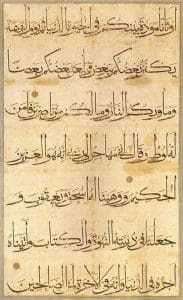 وثانا مودة بينكم في الحيوة الدنيا ثم يوم القيمة
يكفر بعضكم ببعض ويلعن بعضكم بعضا
وماويكم النار وما لكم من ناصرين فامن
له لوط وقال اني مهاجر الى ربي انه هو العزيز
الحكيم ووهبنا له اسحق ويعقوب و
جعلنا في ذريته النبوة والكتاب واتيناه
اجره في الدنيا وانه في الاخرة لمن الصالحين